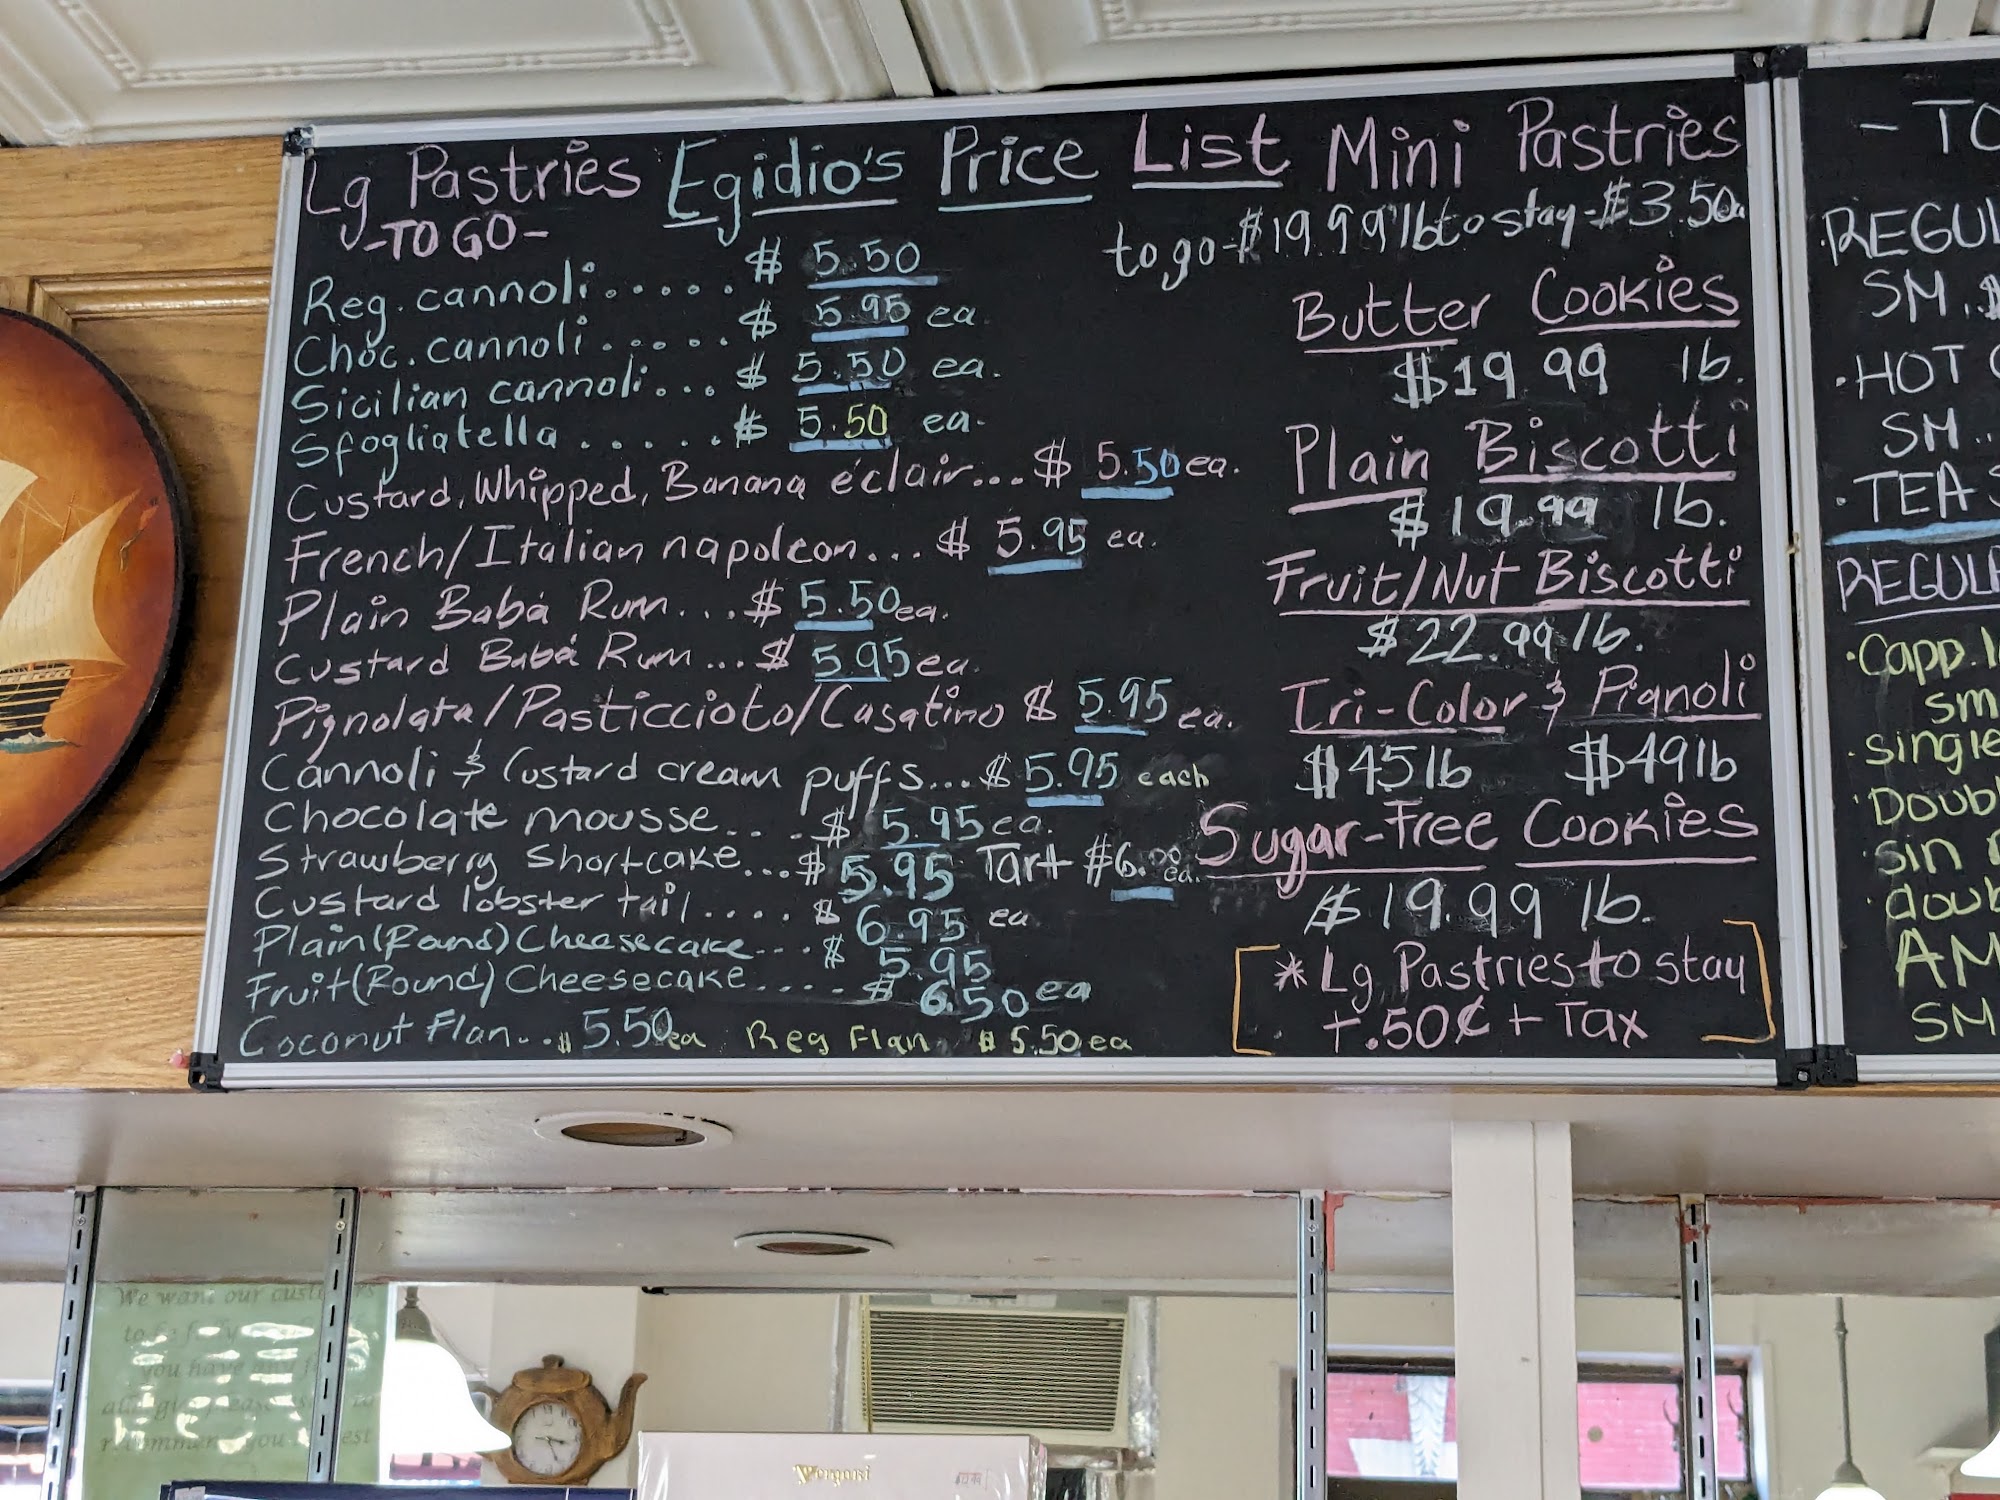 Lg Pastries Egidio's Price List Mini Pastries
-TO GO-
to go-$19.99 lb to stay-$3.50ea
Reg. cannoli...... $ 5.50
Choc. cannoli...... $ 5.95 ea.
Sicilian cannoli... $ 5.50 ea.
Sfogliatella...... $ 5.50 ea.
Custard, Whipped, Banana éclair... $ 5.50 ea.
French/Italian napoleon... $ 5.95 ea.
Plain Babá Rum... $ 5.50 ea.
Custard Babá Rum... $ 5.95 ea.
Pignolata/Pasticcioto/Casatino $ 5.95 ea.
Cannoli & Custard cream puffs... $ 5.95 each
Chocolate mousse... . $ 5.95 ea.
Strawberry Shortcake... $ 5.95 Tart $6.00 ea.
Custard lobster tail.... $ 6.95 ea
Plain(Round)Cheesecake... $ 5.95
Fruit(Round)Cheesecake.... $ 6.50 ea
Coconut Flan... $ 5.50 ea Reg Flan $ 5.50 ea
Butter Cookies
$19.99 lb.
Plain Biscotti
$19.99 lb.
Fruit/Nut Biscotti
$22.99 lb.
Tri-Color & Pignoli
$45 lb $49 lb
Sugar-Free Cookies
$19.99 lb.
*Lg Pastries to stay
+.50¢ + Tax
- TO
·REGUL
SM.
·HOT
SM..
·TEA
REGULA
·Capp.
sm
·single
·Doubl
·sin
·doub
AM
SM
We want our customers
Vergani